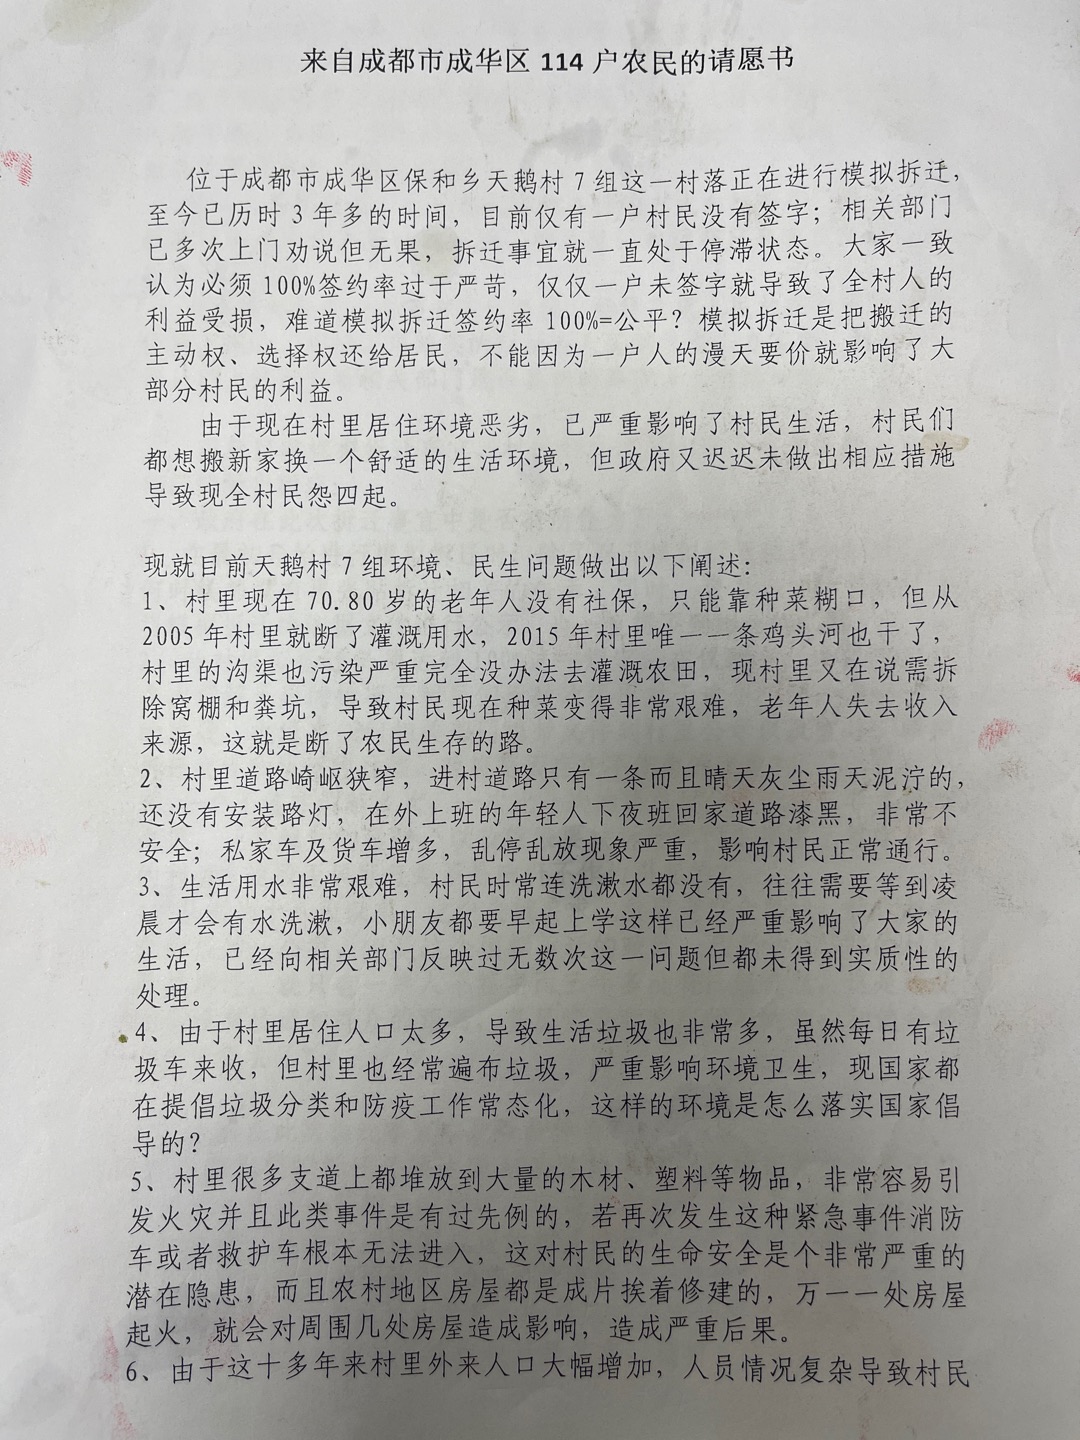 来自成都市成华区 114 户农民的请愿书
位于成都市成华区保和乡天鹅村 7 组这一村落正在进行模拟拆迁，
至今已历时 3 年多的时间，目前仅有一户村民没有签字；相关部门
已多次上门劝说但无果，拆迁事宜就一直处于停滞状态。大家一致
认为必须 100%签约率过于严苛，仅仅一户未签字就导致了全村人的
利益受损，难道模拟拆迁签约率 100%=公平？模拟拆迁是把搬迁的
主动权、选择权还给居民，不能因为一户人的漫天要价就影响了大
部分村民的利益。
由于现在村里居住环境恶劣，已严重影响了村民生活，村民们
都想搬新家换一个舒适的生活环境，但政府又迟迟未做出相应措施
导致现全村民怨四起。
现就目前天鹅村 7 组环境、民生问题做出以下阐述：
1、村里现在 70.80 岁的老年人没有社保，只能靠种菜糊口，但从
2005 年村里就断了灌溉用水，2015 年村里唯一一条鸡头河也干了，
村里的沟渠也污染严重完全没办法去灌溉农田，现村里又在说需拆
除窝棚和粪坑，导致村民现在种菜变得非常艰难，老年人失去收入
来源，这就是断了农民生存的路。
2、村里道路崎岖狭窄，进村道路只有一条而且晴天灰尘雨天泥泞的，
还没有安装路灯，在外上班的年轻人下夜班回家道路漆黑，非常不
安全；私家车及货车增多，乱停乱放现象严重，影响村民正常通行。
3、生活用水非常艰难，村民时常连洗漱水都没有，往往需要等到凌
晨才会有水洗漱，小朋友都要早起上学这样已经严重影响了大家的
生活，已经向相关部门反映过无数次这一问题但都未得到实质性的
处理。
4、由于村里居住人口太多，导致生活垃圾也非常多，虽然每日有垃
圾车来收，但村里也经常遍布垃圾，严重影响环境卫生，现国家都
在提倡垃圾分类和防疫工作常态化，这样的环境是怎么落实国家倡
导的？
5、村里很多支道上都堆放到大量的木材、塑料等物品，非常容易引
发火灾并且此类事件是有过先例的，若再次发生这种紧急事件消防
车或者救护车根本无法进入，这对村民的生命安全是个非常严重的
潜在隐患，而且农村地区房屋都是成片挨着修建的，万一一处房屋
起火，就会对周围几处房屋造成影响，造成严重后果。
6、由于这十多年来村里外来人口大幅增加，人员情况复杂导致村民